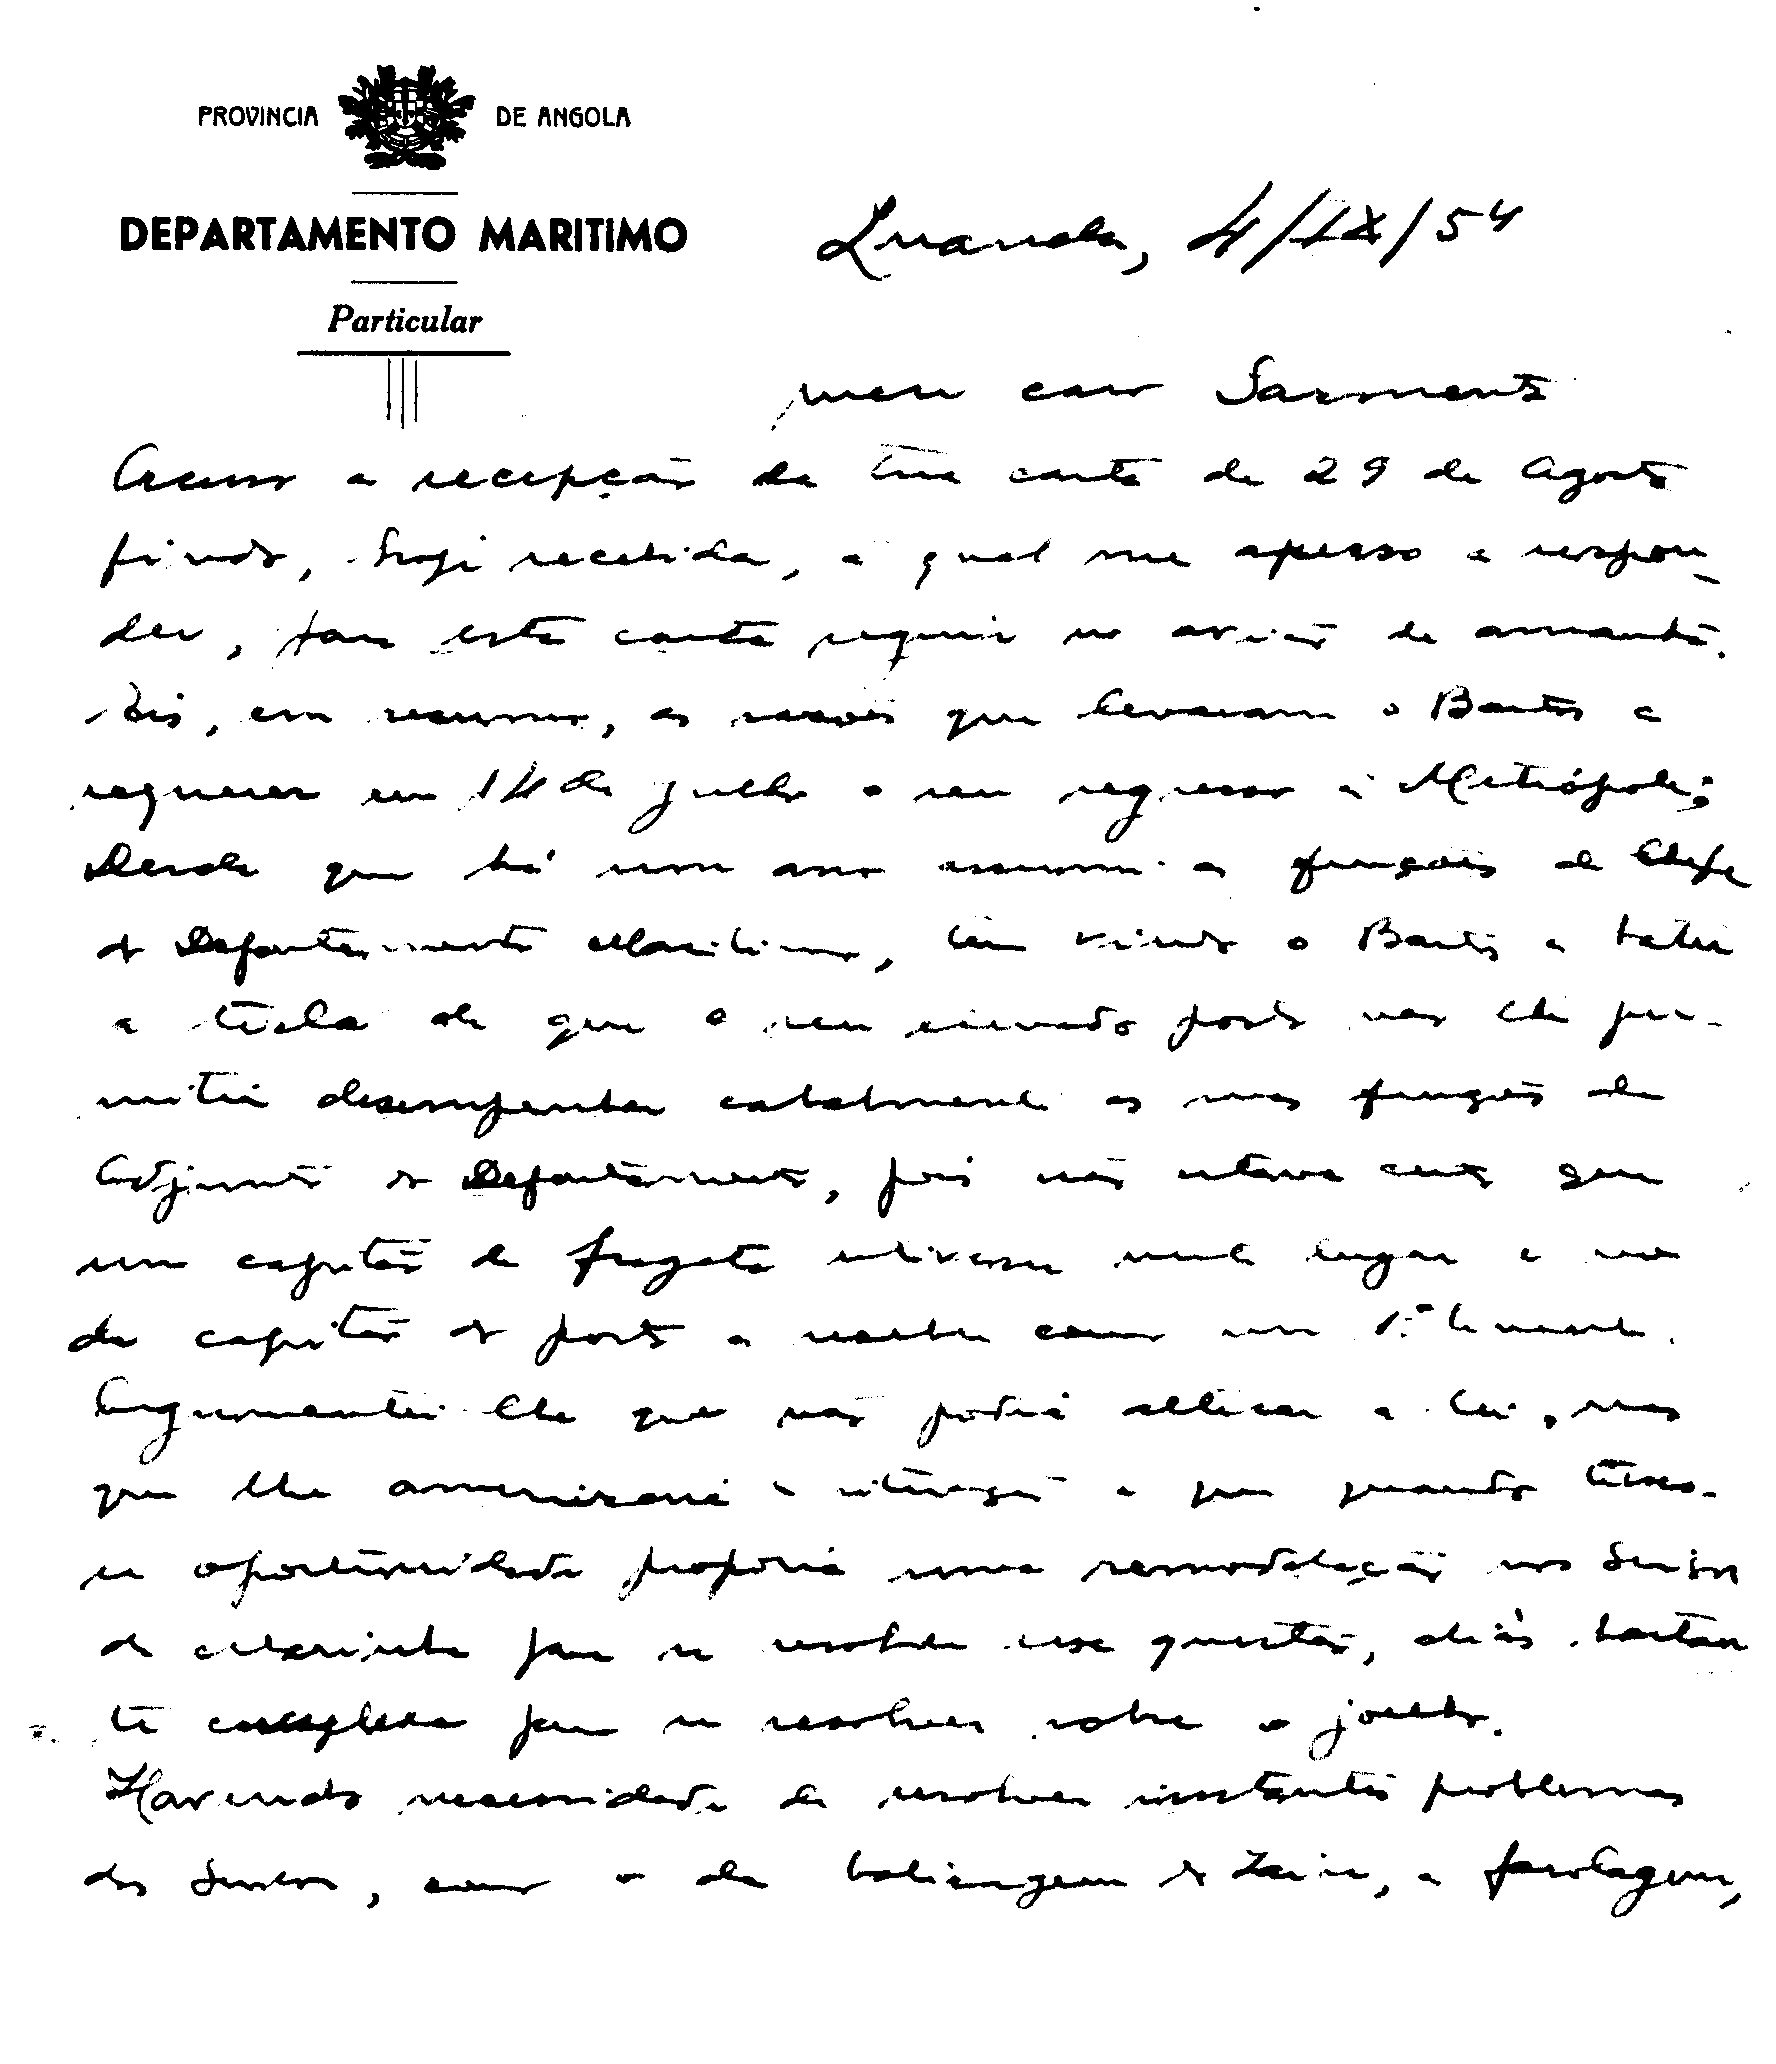 PROVINCIA DE ANGOLA
DEPARTAMENTO MARITIMO
Particular
Luanda, 4/IX/54
Meu caro Sarmento
Acuso a recepção da tua carta de 29 de Agosto
findo, hoje recebida, à qual me apresso a respon-
der, para esta carta seguir no avião de amanhã.
Eis, em resumo, as razões que levaram o Bastos a
requerer em 14 de Julho o seu regresso à Metrópole:
Desde que há um ano assumi as funções de Chefe
do Departamento Marítimo, tem vindo o Bastos a bater
a tecla de que o seu elevado posto não lhe per-
mitia desempenhar cabalmente as suas funções de
Adjunto do Departamento, pois não estava certo que
um capitão de fragata estivesse neste lugar e no
de capitão do porto a receber como um 1º tenente.
Argumentei-lhe que não podia alterar a lei, mas
que lhe amenizaria a situação e que quando tives-
se oportunidade proporia uma remodelação nos Serviços
de Marinha para se resolver essa questão, aliás bastan
te complexa para se resolver sobre o joelho.
Havendo necessidade de resolver instantes problemas
dos Serviços, como o da balizagem do Zaire, a farolagem,